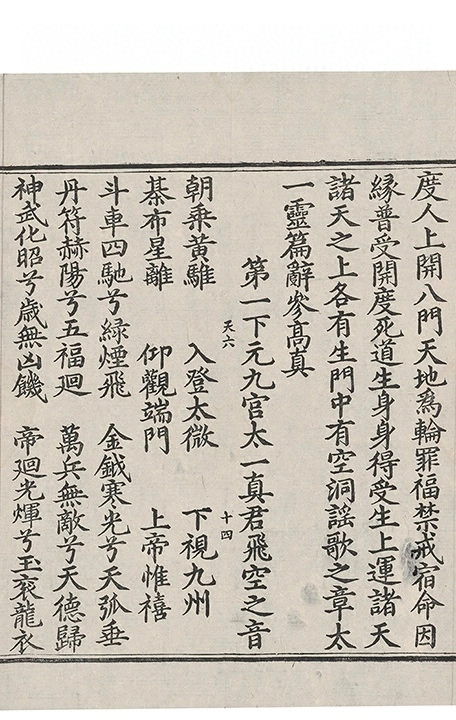 度人上開八門天地爲輪罪福禁戒宿命因
縁普受開度死道生身身得受生上運諸天
諸天之上各有生門中有空洞謡歌之章太
一靈篇辭參高真
第一下元九宮太一真君飛空之音
天六 十四
朝乘黄騅 入登太微 下視九州
棊布星離 仰觀端門 上帝惟禧
斗車四馳兮綠煙飛 金鉞寒光兮天弧垂
丹符赫陽兮五福廻 萬兵無敵兮天德歸
神武化昭兮歳無凶饑 帝廻光煇兮玉衮龍衣